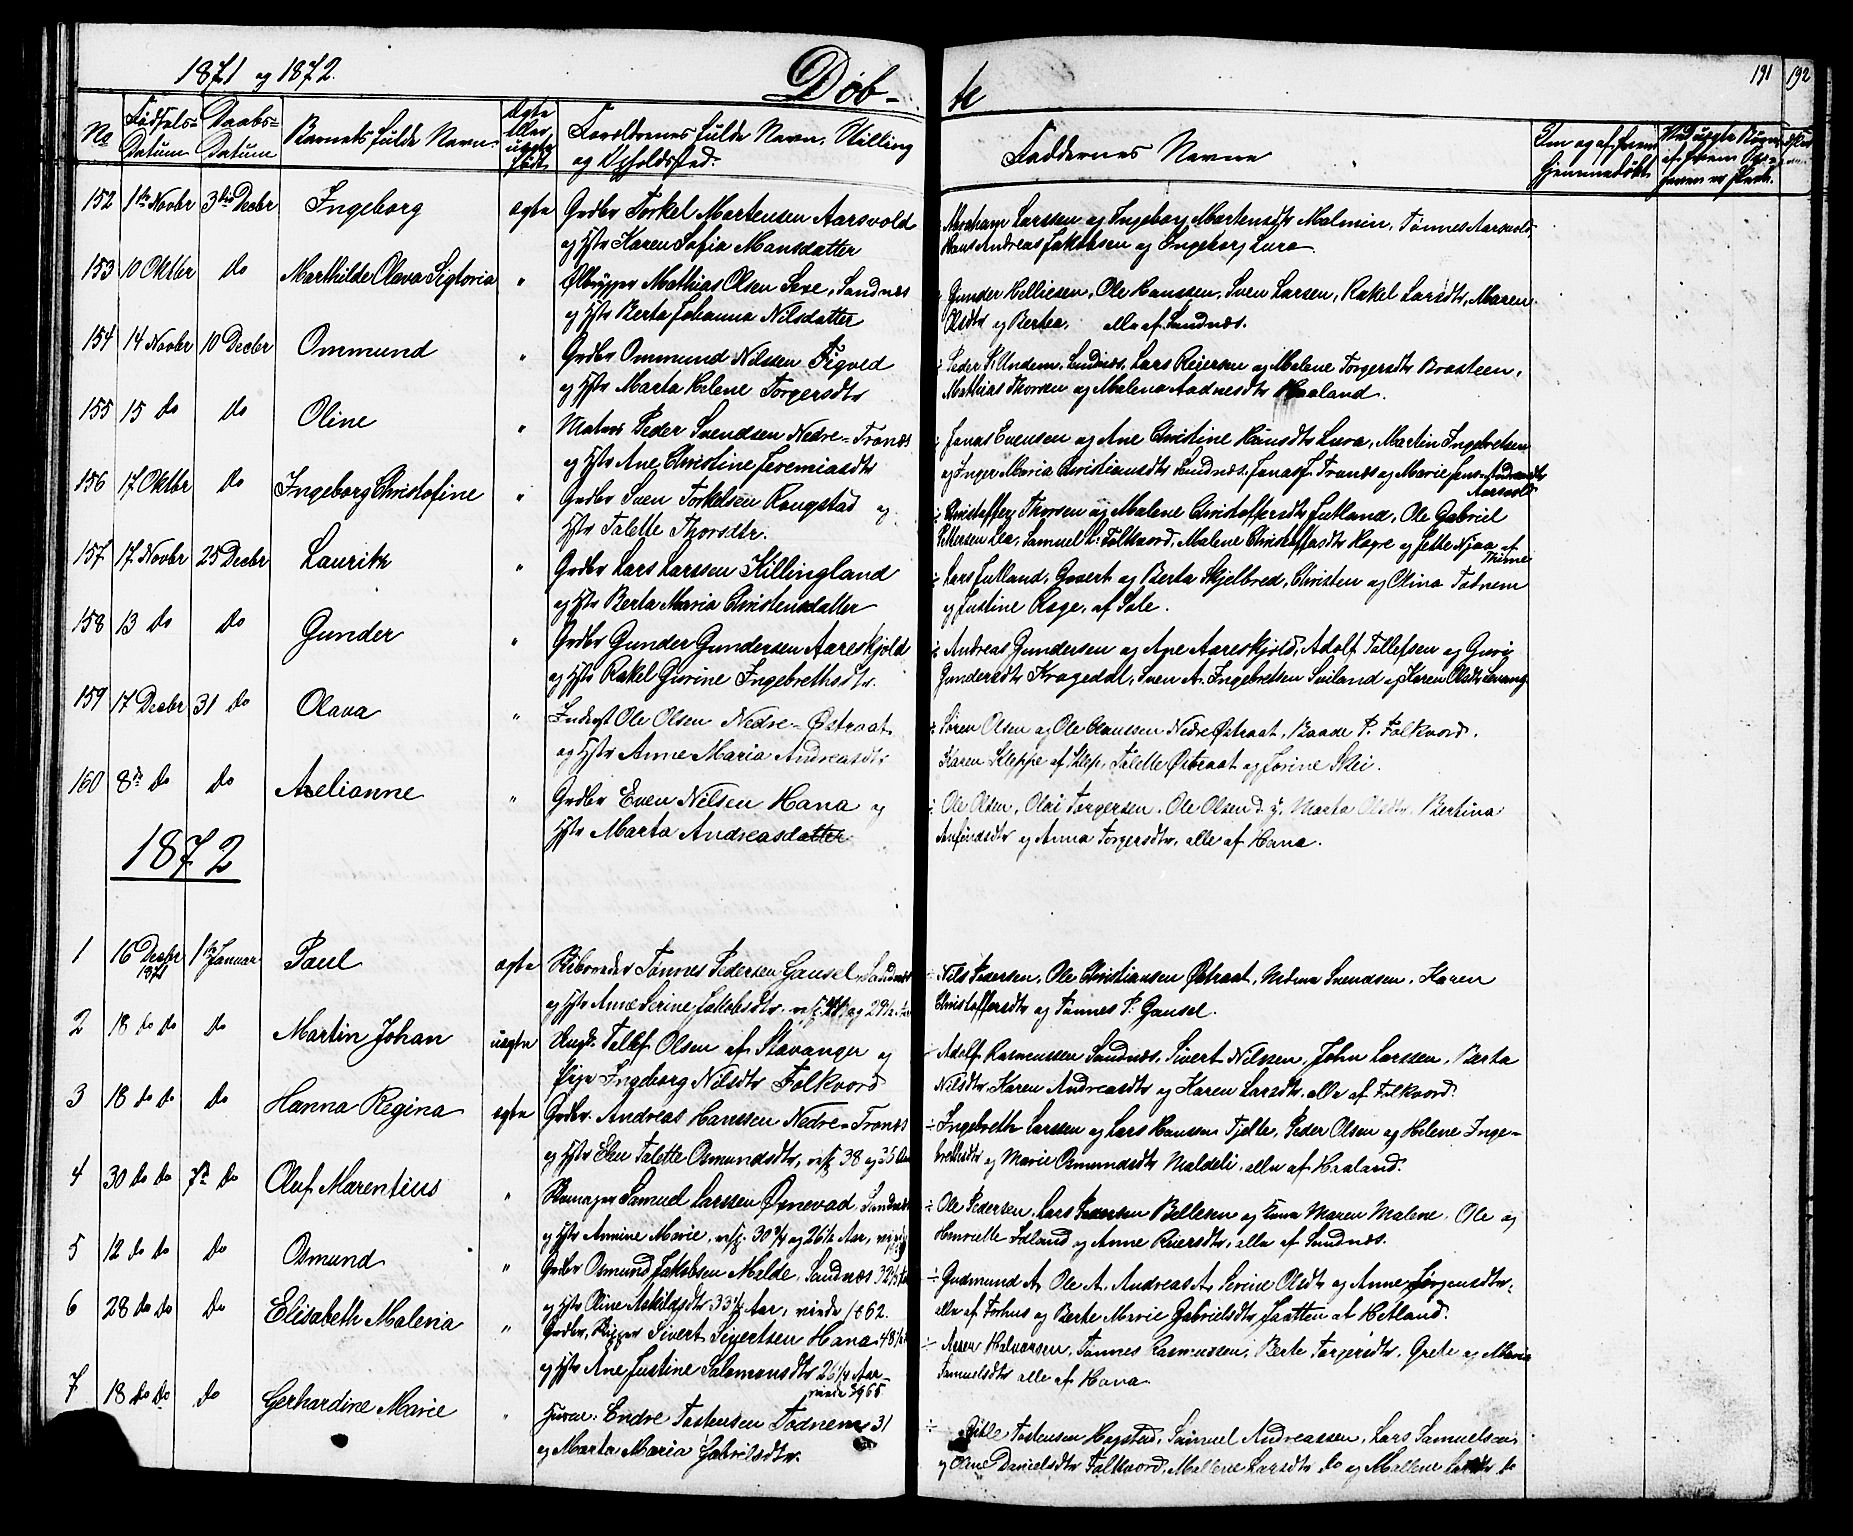 1871 og 1872.
Døb-
te
191
192
No
Fødsels-Datum
Daabs-Datum
Barnets fulde Navn.
Ægte eller uægte født.
Forældrenes fulde Navn, Stilling og Opholdssted.
Faddernes Navne
Om og af hvem hjemmedøbt.
152 1ste Novbr 3die Decbr Ingeborg ægte Grdbr Torkel Martensen Aarsvold
og Hstr Karen Sofia Monsdatter
Abraham Larssen og Ingeborg Martensdtr Malmin, Tønnes Aarsvold
Hans Andreas Jakobsen og Ingeborg Lura.
153 10 Oktbr do Marthilde Olava Sigtoria " Mathias Olsen Sere, Sandnæs
og Hstr Berta Johanna Nilsdatter
Gunder Helliesen, Ole Hanssen, Sven Larsen, Rakel Larsdtr, Maren
Olsdtr og Bertea, alle af Sandnæs.
154 14 Novbr 10 Decbr Ommund " Grdbr Ommund Nilssen Figved
og Hstr Marta Helene Torgersdtr
Peder Sandnæs, Lars Reiersen og Malene Torgersdtr Brasteen,
Mathias Thorsen og Malena Aadnesdtr Haaland.
155 15 do do Oline " Peder Svendsen Nedre-Tronæs
og Hstr Ane Christine Jeremiasdtr
Jonas Evensen og Ane Christine Hansdtr Lura, Martin Ingebretsen
og Inger Maria Christiansdtr Sandnæs, Jonas J. Tronæs og Marie
Aarsvold
156 17 Oktbr do Ingeborg Christofine " Grdbr Sven Torkelsen Rougstad og
Hstr Talette Thorsdtr.
Christoffer Thorsen og Malene Christoffersdtr Jutland, Ole Gabriel
Pettersen Lea, Samuel L. Folkvord, Malene Christoffersdtr Høgre og Jette Njaa af
Thime
157 17 Novbr 25 Decbr Lauritz " Grdbr Lars Larssen Killingland
og Hstr Berta Maria Christensdatter
Lars Jutland, Govert og Berta Skjelbred, Christen og Olina Todnem
og Justine Rage, af Sole.
158 13 do do Gunder " Grdbr Gunder Gundersen Aareskjold
og Hstr Rakel Gurine Ingebrethsdtr.
Andreas Gundersen og Ane Aareskjold, Adolf Tollefsen og Guri
Gundersdtr Kragedal, Sven A. Ingebretsen Sviland og Karen Olsdtr
159 17 Decbr 31 do Olava " Inderst Ole Olsen Nedre-Østraat
og Hstr Anne Maria Andreasdtr
Søren Olsen og Ole Clausen Nedre Østraat, Baade P. Folkvord,
Karen Kleppe af Klep, Talette Østraat og Jorine Skei.
160 8de do do Aelianne " Grdbr Even Nilsen Hana og
Hstr Marta Andreasdatter
Ole Olsen, Olai Torgersen, Ole Olsen d. y., Marta Olsdtr, Bertina
og Anna Torgersdtr, alle af Hana.
1872
1 16 Decbr 1871 1ste Januar Paul ægte Tønnes Pedersen Gausel, Sandnæs
og Hstr Anne Serine Jakobsdtr
Nils Pedersen, Ole Christiansen Østraat, Svendsen, Karen
Christoffersdtr og Tønnes P. Gausel.
2 18 do do do Martin Johan uægte Ungk. Tollef Olsen af Stavanger og
Pige Ingeborg Nilsdtr Folkvord
Adolf Rasmussen Sandnæs, Sivert Nilssen, John Larssen, Berta
Nilsdtr, Karen Andreasdtr og Karen Larsdtr, alle af Folkvord.
3 18 do do do Hanna Regina ægte Grdbr. Andreas Hanssen Nedre-Tronæs
og Hstr Elen Talette Osmundsdtr, 38 og 35 Aar
Ingebreth Larssen og Lars Hanssen Tjelte, Peder Olsen og Helene Inge-
brethsdtr og Marie Osmundsdtr Maldeli, alle af Haaland.
4 30 do do 7de do Oluf Marentius " Samuel Larssen Ørnevad, Sandnæs
og Hstr Annine Marie, 30 3/4 og 26 1/2 Aar,
Ole Pedersen, Lars Pedersen Bellesen og Kona Maren Malene, Ole og
Henriette Idland og Anne Reiersdtr, alle af Sandnæs.
5 12 do do do Osmund " Grdbr Osmund Jakobsen Malde, Sandnæs 32
og Hstr Oline Askildsdtr 33 1/2 Aar, viede 1862.
Gudmund A. Ole A. Andreas A. Serine Olsdtr og Anne Jørgensdtr,
alle af Forhus og Berte Marie Gabrielsdtr Saatten af Hetland.
6 28 do do do Elisabeth Malena " Grdbr, Skipper Sivert Sivertsen Hana 48
og Hstr Ane Justine Salomonsdtr 26 1/4 Aar
viede 1865.
Halvorsen, Tønnes Rasmussen, Berte Torgersdtr, Grete og Maria
Samuelsdtr alle af Hana.
7 18 do do do Gerhardine Marie " Endre Tostensen Todnem 31
og Marta Maria Gabrielsdtr.
Tostensen Hogstad, Samuel Andreassen, Lars Samuelsen
og Oline Danielsdtr Folkvord, Mallene Larsdtr do og Mallene do